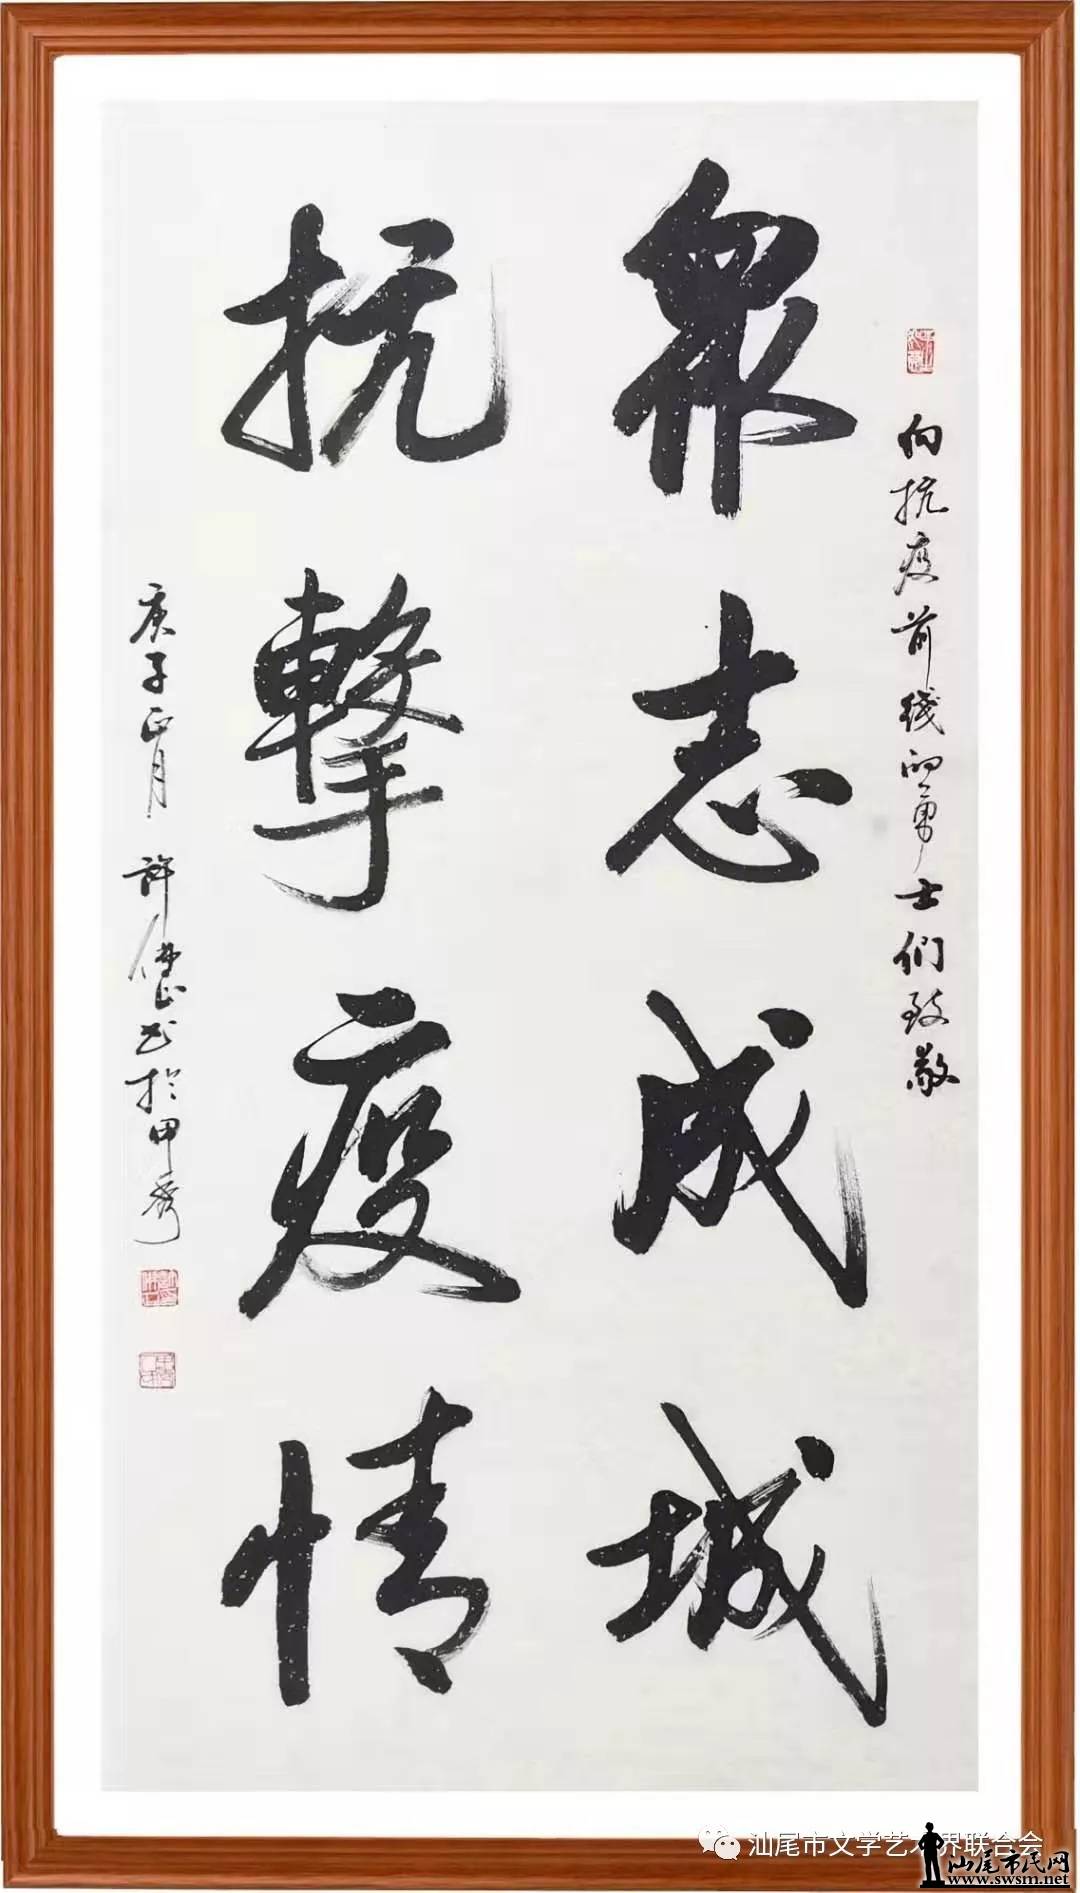 向抗疫前线的勇士们致敬
衆志成城
抗擊疫情
庚子正月 許书於甲秀
汕尾市文学艺术界联合会
汕尾市民网
www.swsm.net